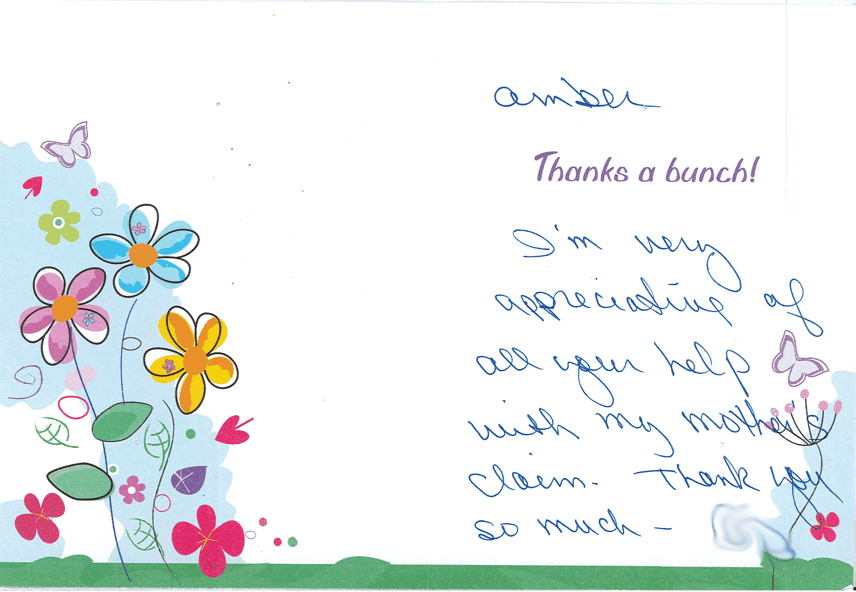 amber
Thanks a bunch!
I'm very
appreciative of
all your help
with my mother's
claim. Thank you
so much -